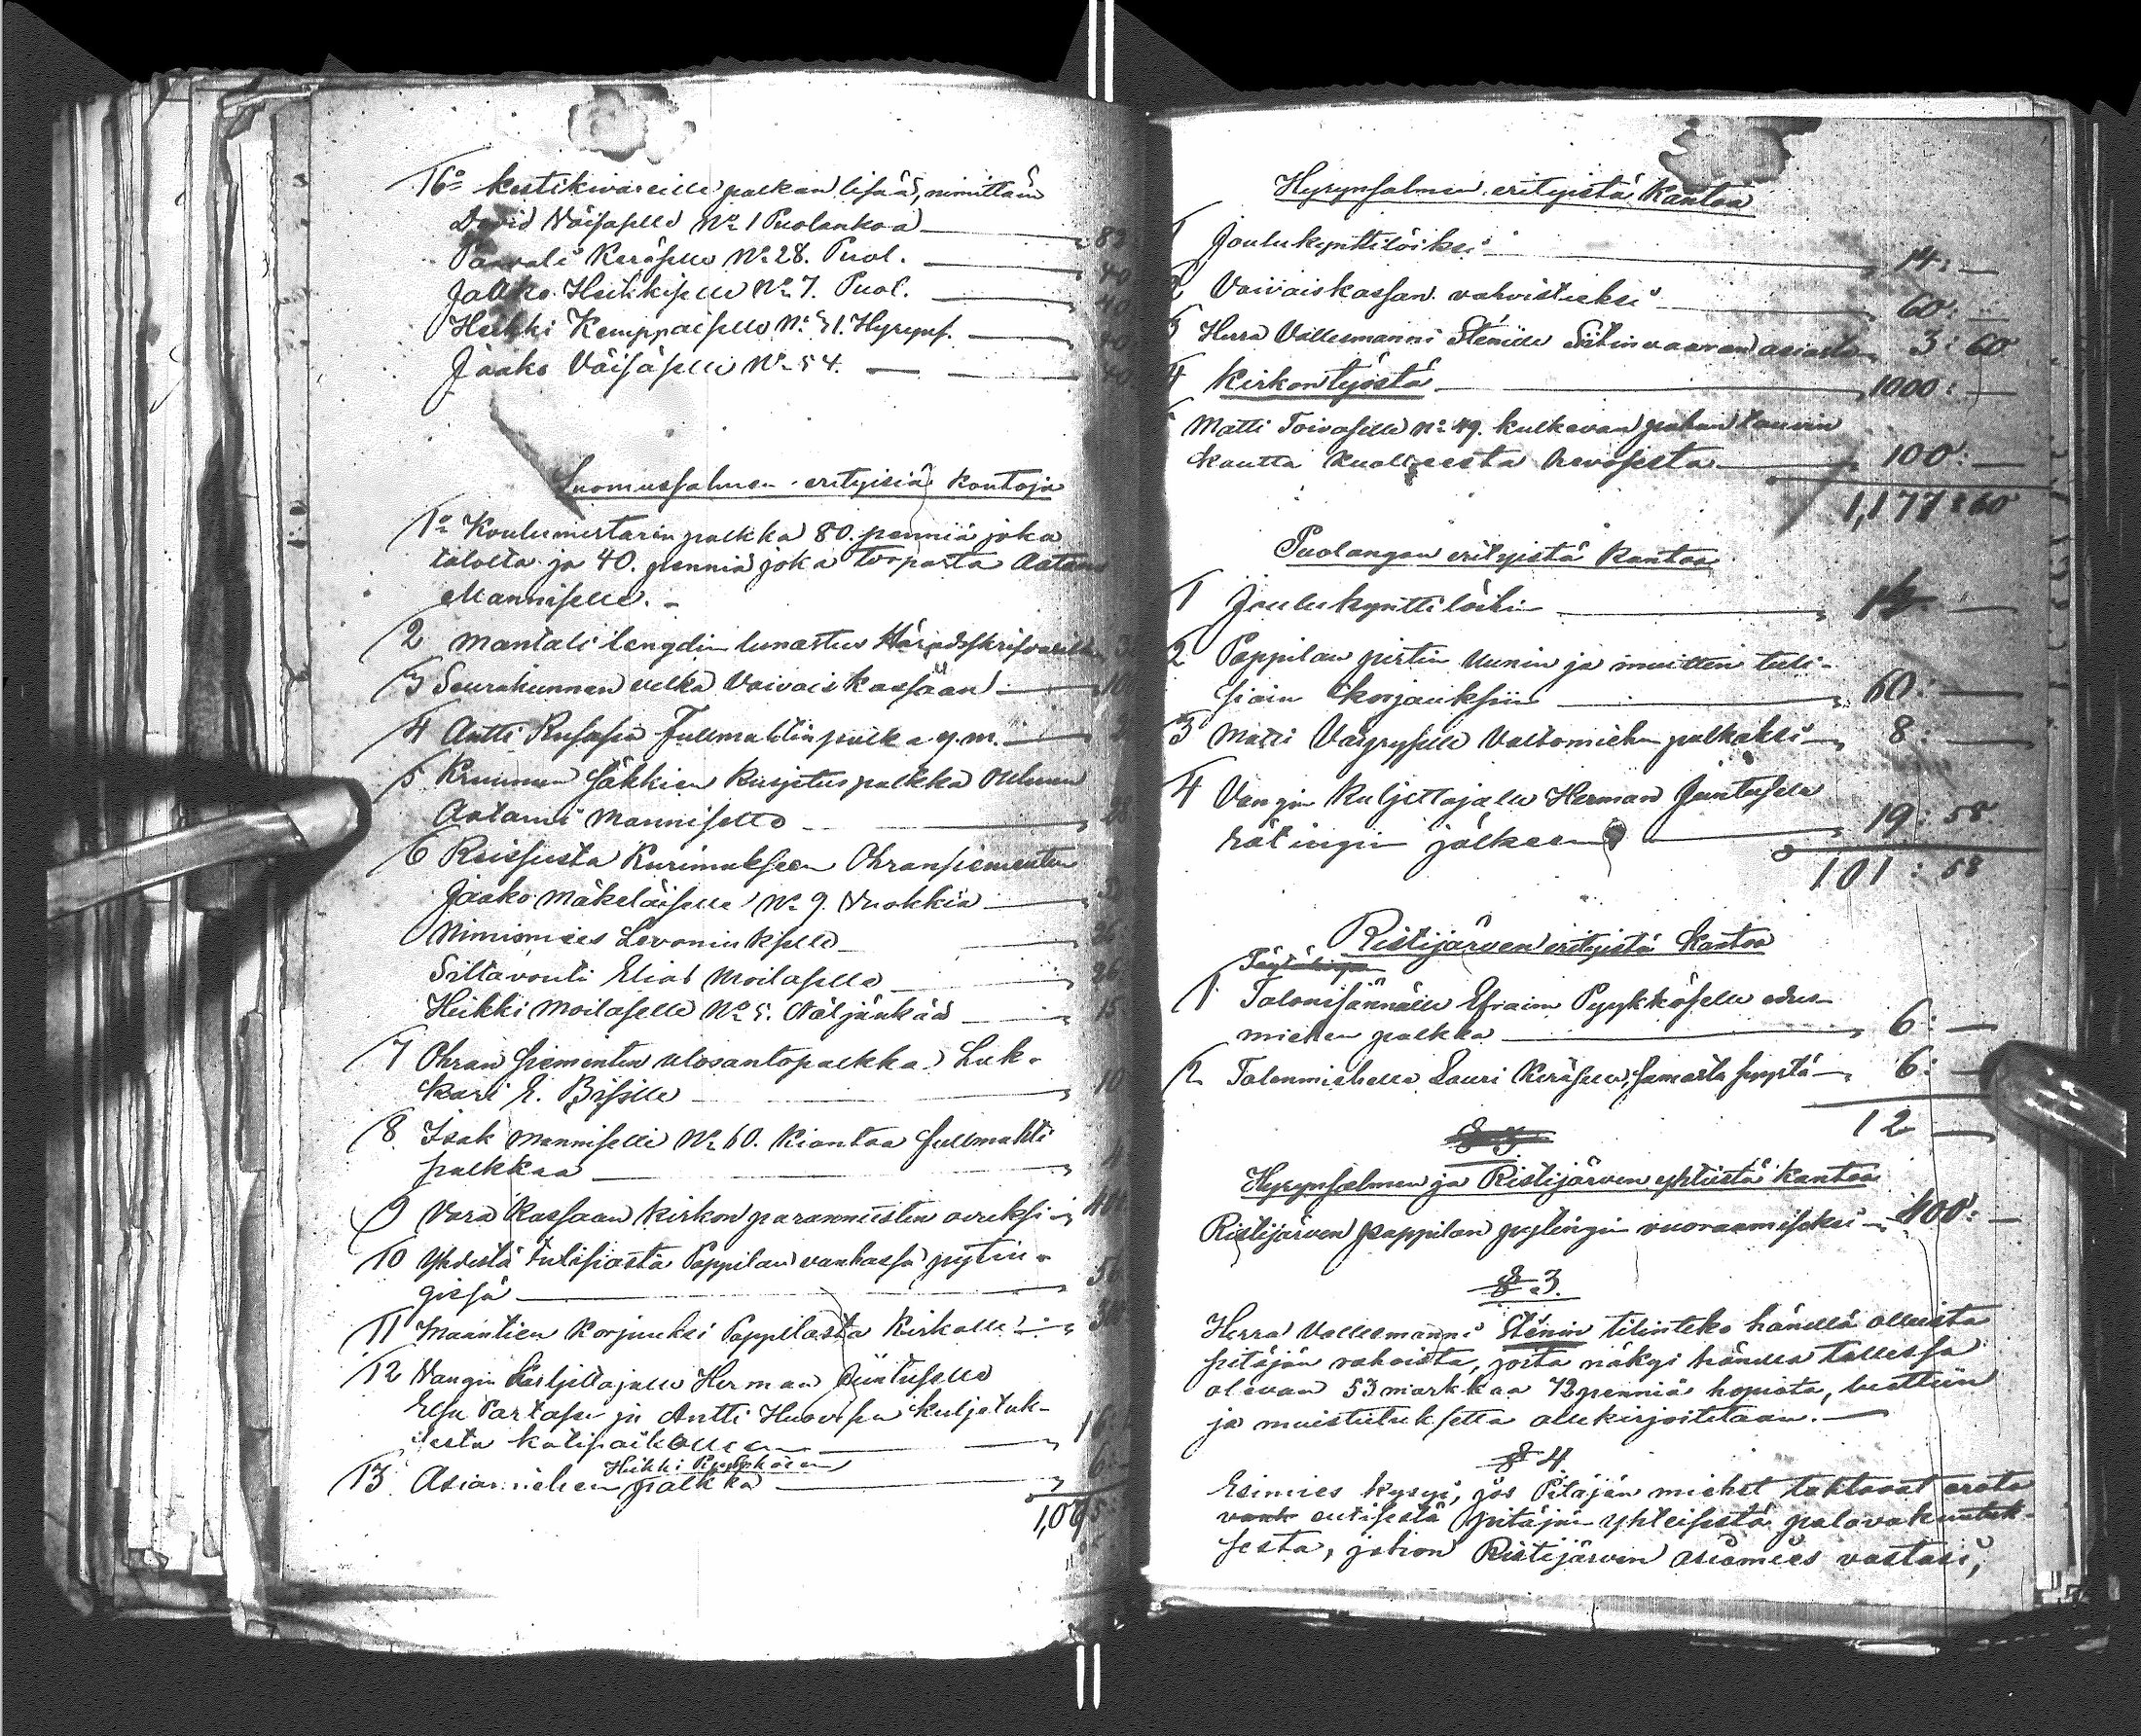 16o kestikivareille palkan lisää, nimittäin
David Väisäselle No 1 Puolankoa 82
Paavali Keräselle No 28. Puol. 40
Jaakko Heikkiselle No 7. Puol. 40
Heikki Kemppaiselle No 31. Hyryns. 40
Jaako Väisäselle No 54. 40
Suomussalmen erityisiä kantoja
1o Koulumestarin palkka 80. penniä joka
talolta ja 40. penniä joka torparta Aatami
Manniselle.
2 Mantali lengdin lunastus Häradsskrifvarille
3 Seurakunnan velka Vaivaiskassaan
4 Antti Fullmahtin palkka y.m.
5 Kruunun säkkien kuljetus palkka Ouluun
Aatami Manniselle 28
6 Reissusta Kurimukseen Ohransiementen
Jaako Mäkeläiselle No 9. Vuokkia
Nimismies Levoniukselle 26
Siltavouti Elias Moilaselle 26
Heikki Moilaselle No 5. Näljänkää 15
7 Ohran siementen ulosantopalkka Luk-
kari E. Bisille 10
8 Isak Manniselle No 60. Kiantaa fullmahti
palkkaa 4
9 Vara Kassaan kirkon parannusten avuksi 400
10 Yhdestä tulisiasta Pappilan vanhassa pytin-
gissä 50
11 Maantien korjuuksi Pappilasta Kirkolle 30
12 Vangin kuljettajalle Herman Juntuselle
Partasen ja Antti Huovisen kuljetuk-
sesta kotipaikalleen 16
Heikki Pyykkösen
13 Asiamiehen palkka 6:
1,095:
Hyrynsalmen erityistä Kantoa
1 Joulukynttilöiksi 14: —
2 Vaivaiskassan vahvistukseksi 60: —
3 Herra Vallesmanni Stenille Siitinvaaran asiasta 3: 60
4 Kirkontyöstä 1000: —
5 Matti Toivoselle No 49. kulkevan puhan tauvin
kautta kuolleesta hevosesta 100: —
1,177: 60
Puolangan erityistä Kantoa
1 Joulukynttilöihin 14 —
2 Pappilan pirtin Uunin ja muitten tuli-
siain korjauksiin 60: —
3 Matti Väyryselle Valtomiehen palkaksi 8: —
4 Vangin kuljettajalle Herman Juntuselle
rätingin jälkeen 19: 58.
101: 58
Ristijärven erityistä kantoa
1 Talonisännälle Efraim Pyykköselle edus-
miehen palkka 6: —
2 Talonmiehelle Lauri Keräselle, samasta syystä 6: —
12 —
Hyrynsalmen ja Ristijärven yhteistä kantoa
Ristijärven pappilan pytingin vuoraamiseksi 400: —
§ 3.
Herra Vallesmanni Stenin tilinteko hänellä olleista
pitäjän rahoista, josta näkyi hänellä tallessa
olevan 53 markkaa 72 penniä hopiata, luettiin
ja muistutuksetta allekirjoitetaan. —
§ 4
Esimies kysyi, jos Pitäjän miehet tahtovat erota
vanh entisestä pitäjän yhteisestä palovakuutuk-
sesta, johon Ristijärven asiamies vastasi,